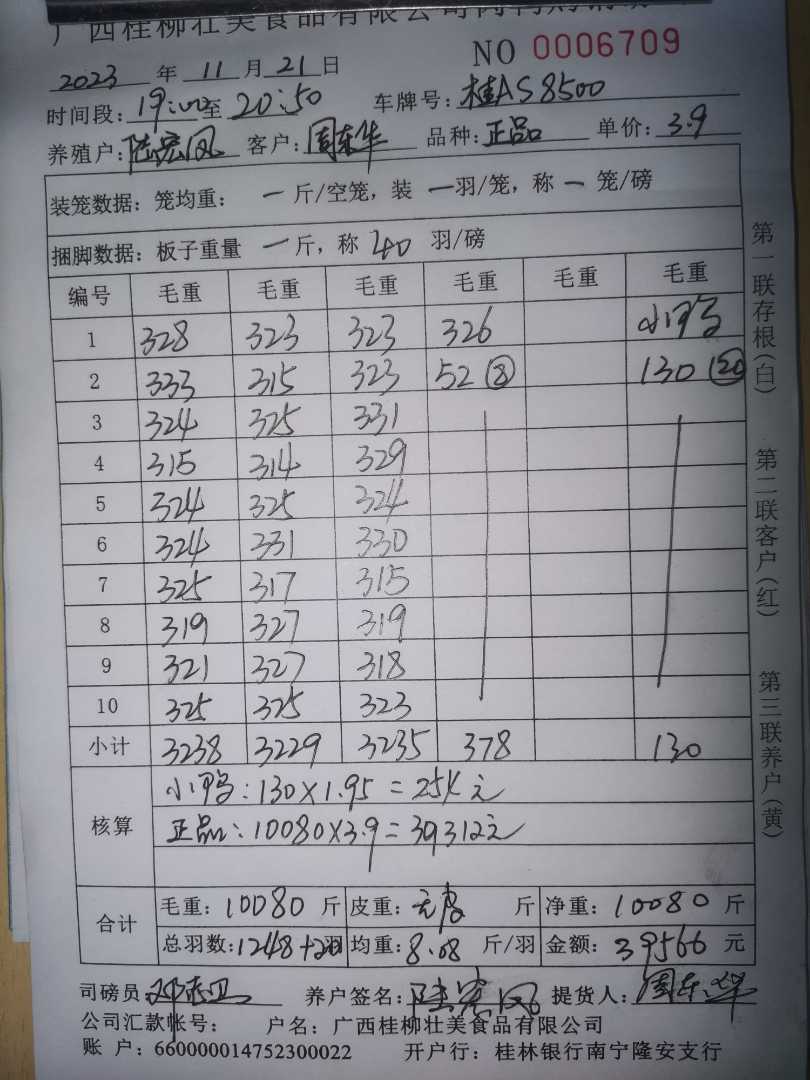 广西桂柳壮美食品有限公司
NO 0006709
2023 年 11 月 21 日
时间段: 19:00 至 20:50 车牌号: 桂AS8500
养殖户: 陆宏凤 客户: 周东华 品种: 正品 单价: 3.9
装笼数据: 笼均重: 一 斤/空笼, 装 一 羽/笼, 称 一 笼/磅
捆脚数据: 板子重量 一 斤, 称 40 羽/磅
编号 毛重 毛重 毛重 毛重 毛重 毛重
1 328 323 323 326 小鸭
2 333 315 323 52 ⑧ 130 ⑳
3 324 325 331
4 315 314 329
5 324 325 324
6 324 331 330
7 325 317 315
8 319 327 319
9 321 327 318
10 325 325 323
小计 3238 3229 3235 378 130
核算
小鸭: 130×1.95=254元
正品: 10080×3.9=39312元
合计
毛重: 10080 斤 皮重: 无皮 斤 净重: 10080 斤
总羽数: 1248+20 羽 均重: 8.08 斤/羽 金额: 39566 元
司磅员 养户签名: 陆宏凤 提货人: 周东华
公司汇款帐号: 户名: 广西桂柳壮美食品有限公司
账 户: 660000014752300022 开户行: 桂林银行南宁隆安支行
第一联存根(白)
第二联客户(红)
第三联养户(黄)